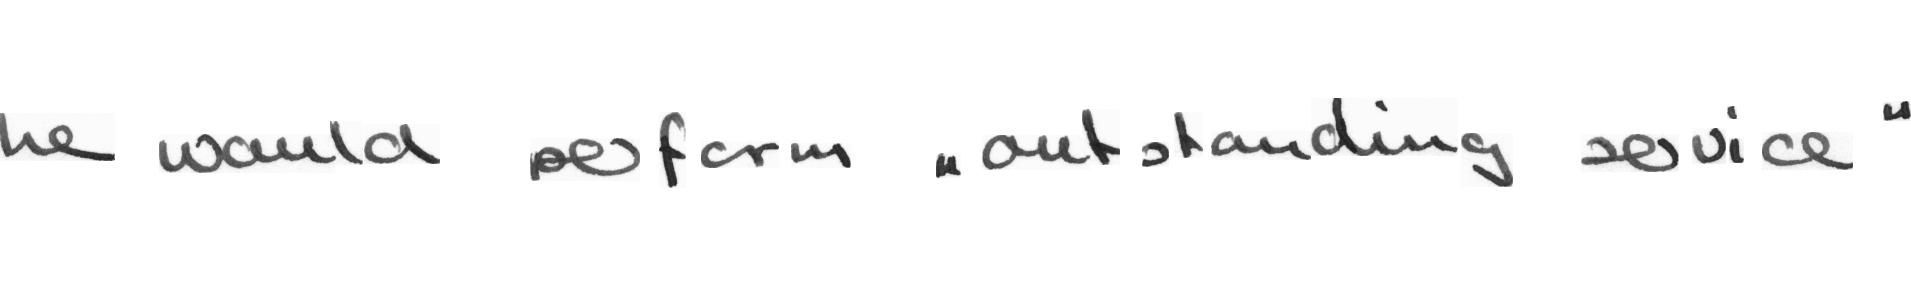 he would perform „outstanding service"